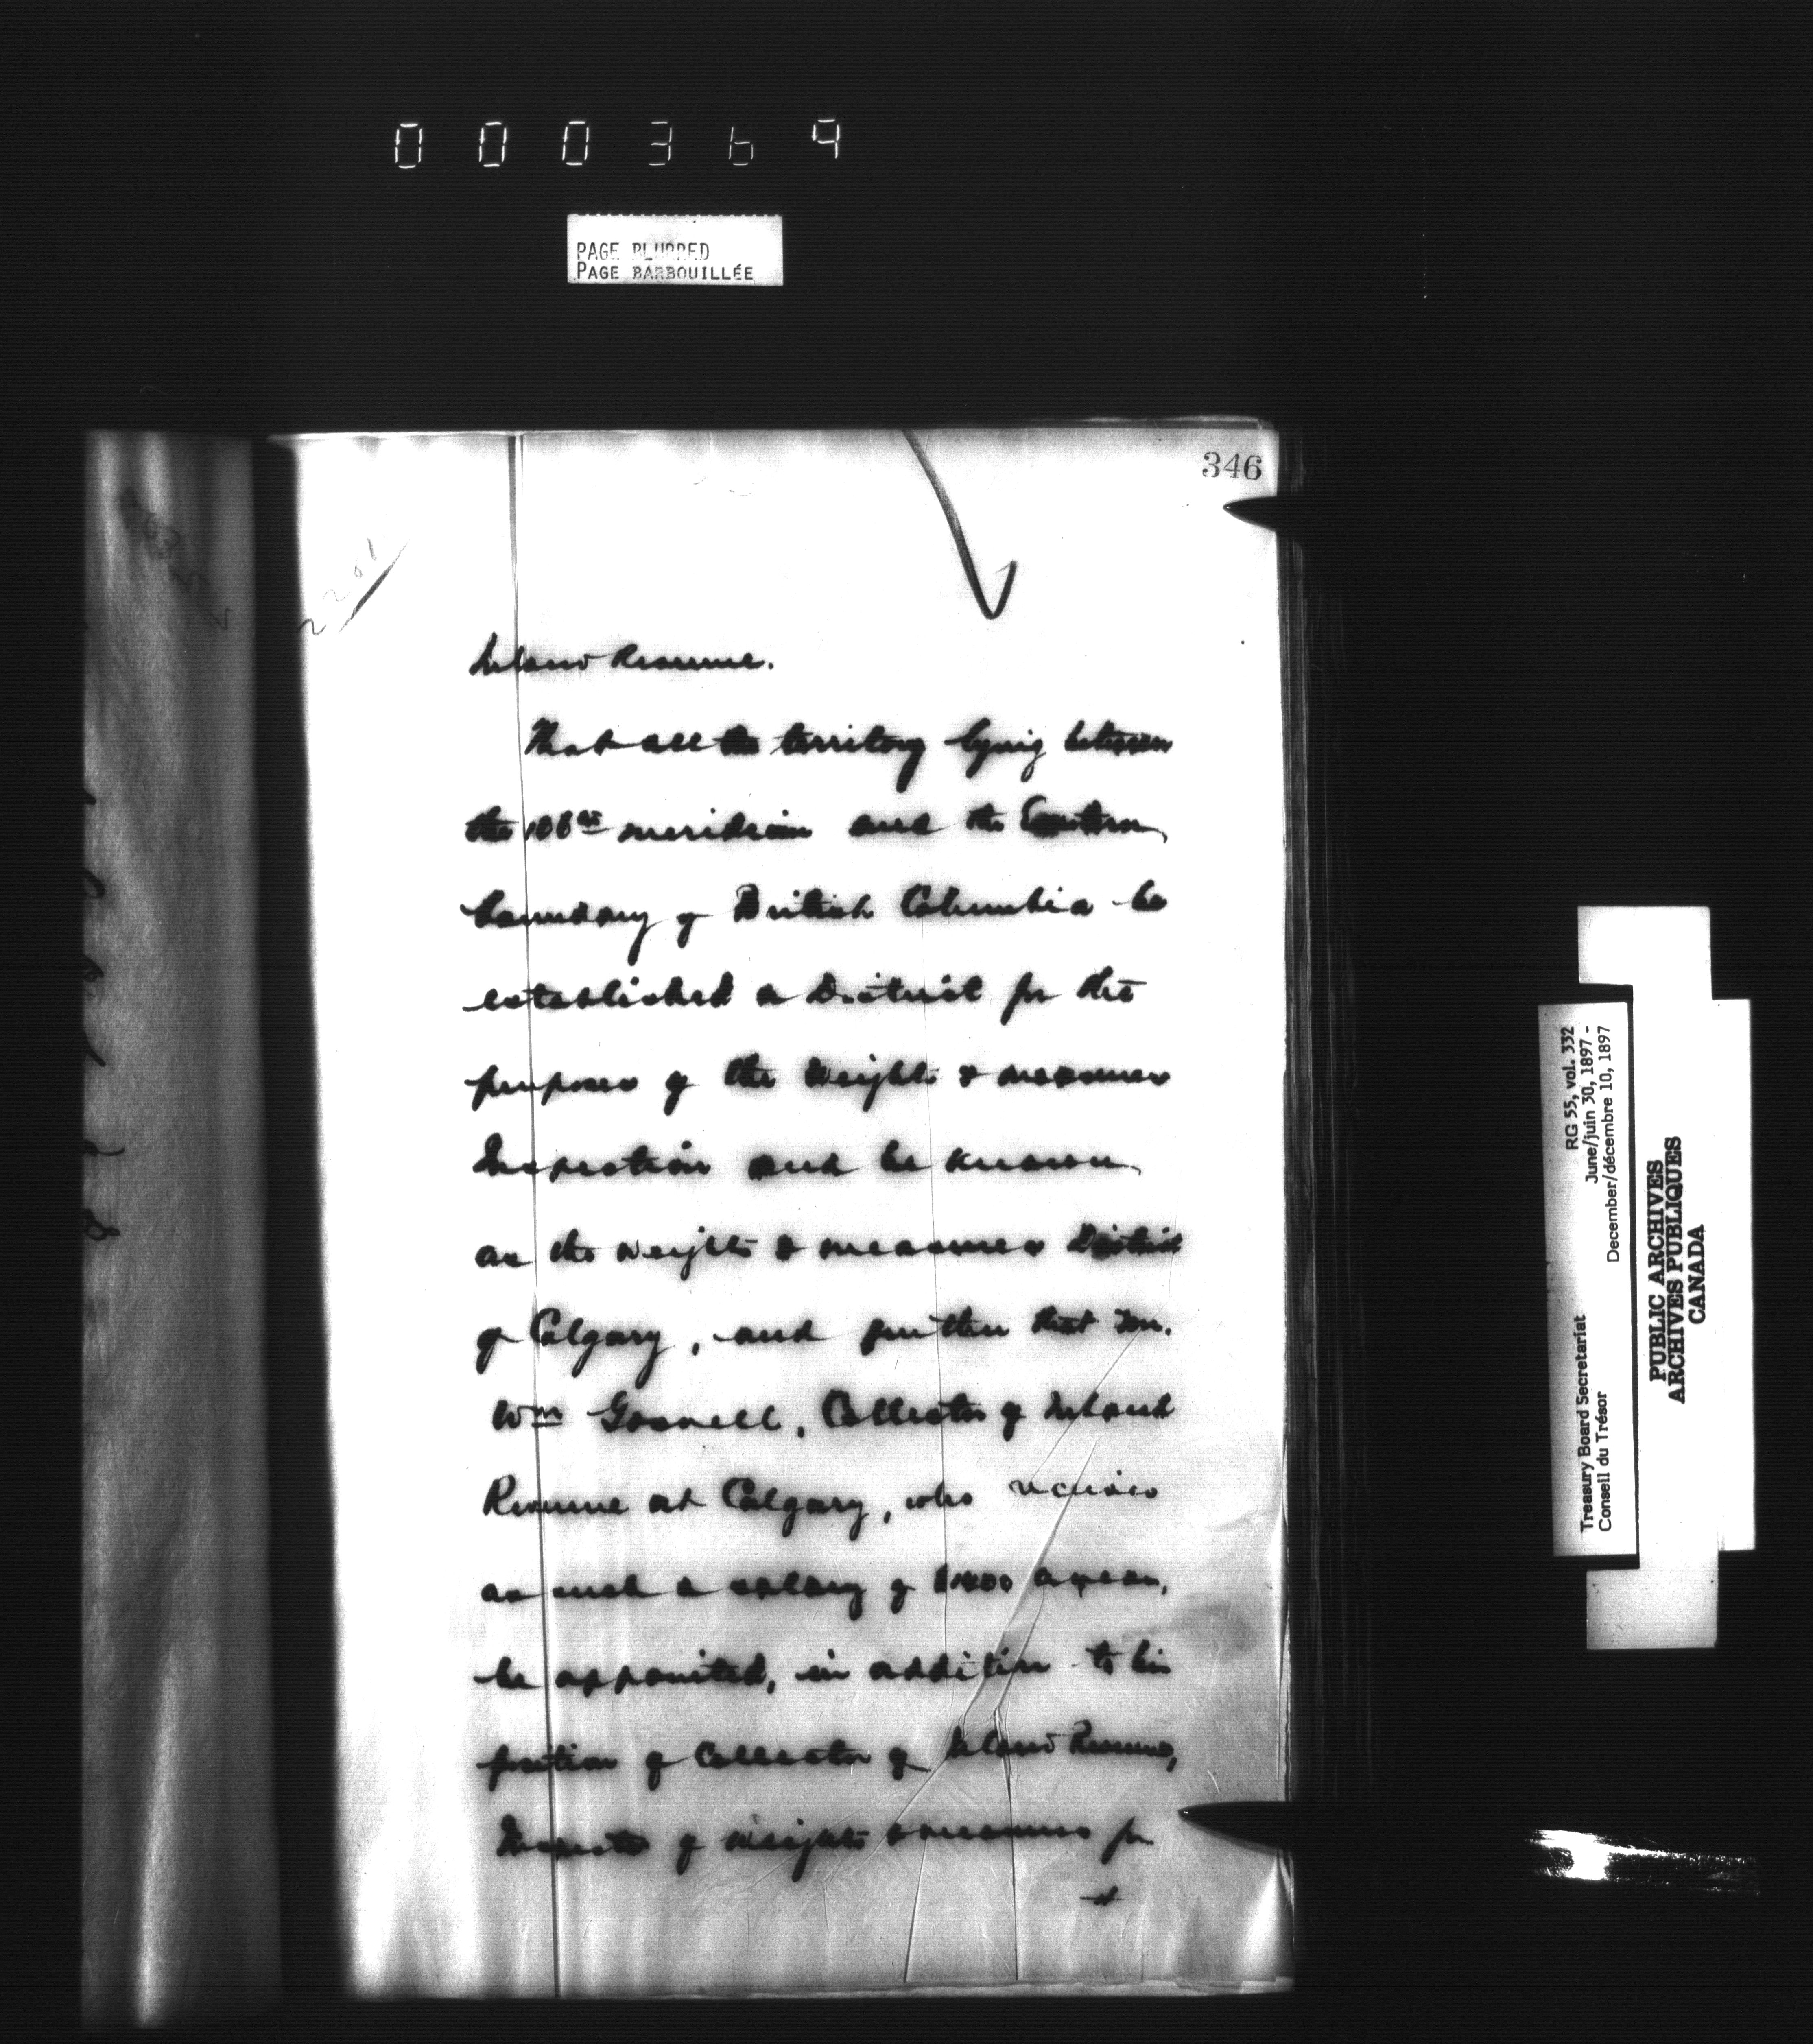 000369
PAGE BLURRED
PAGE BARBOUILLÉE
346
2201
Inland Revenue.
That all the territory lying between
the 106th meridian and the Eastern
boundary of British Columbia be
established a District for the
purposes of the Weights & measures
Inspection and be known
as the weights & measures District
of Calgary, and further that
Wm Gosnell, Collector of Inland
Revenue at Calgary, who receives
as such a salary of a year,
be appointed, in addition to his
position of Collector of Inland Revenue,
Inspector of Weights & measures for
RG 55, vol. 332
June/juin 30, 1897 -
December/décembre 10, 1897
Treasury Board Secretariat
Conseil du Trésor
PUBLIC ARCHIVES
ARCHIVES PUBLIQUES
CANADA